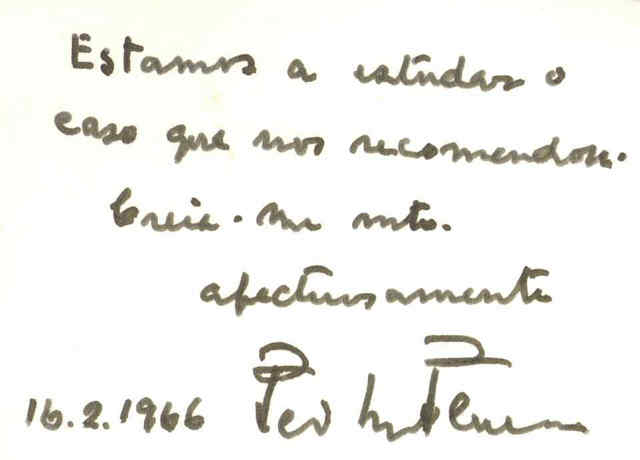 Estamos a estudar o
caso que nos recomendou.
Creia-me mto.
afectuosamente
16.2.1966